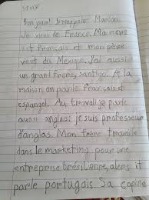 Bonjour! Je m'appelle Marcos.
Je viens de France. Ma mère
est français et mon père
vient du Mexique. J'ai aussi
un grand frère, Santiago. À la
maison on parle français et
espagnol. Au travail je parle
aussi anglais je suis professeur
d'anglais. Mon frère travaille
dans le marketing pour une
entreprise brésilienne, alors il
parle portugais. Sa copine